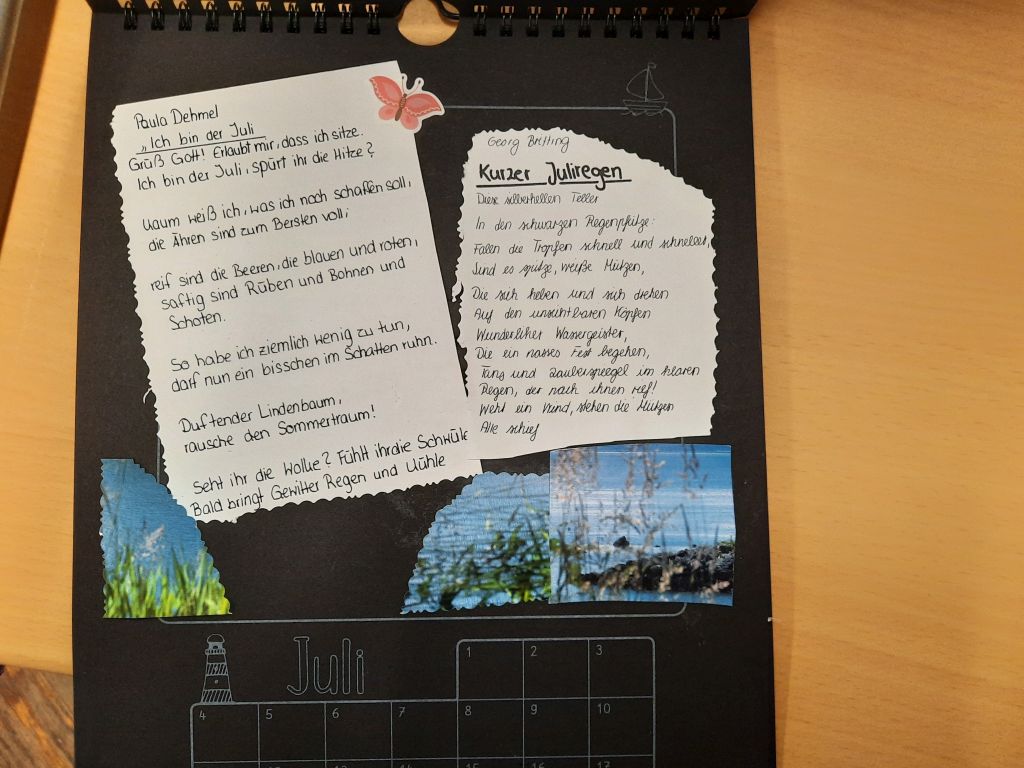 Paula Dehmel
„Ich bin der Juli
Grüß Gott! Erlaubt mir, dass ich sitze.
Ich bin der Juli, spürt ihr die Hitze?
Kaum weiß ich, was ich noch schaffen soll,
die Ähren sind zum Bersten voll;
reif sind die Beeren, die blauen und roten,
saftig sind Rüben und Bohnen und
Schoten.
So habe ich ziemlich wenig zu tun,
darf nun ein bisschen im Schatten ruhn.
Duftender Lindenbaum,
rausche den Sommertraum!
Seht ihr die Wolke? Fühlt ihr die Schwüle
Bald bringt Gewitter Regen und Kühle
Georg Britting
Kurzer Juliregen
Diese silberhellen Teller
In den schwarzen Regenpfütze:
Fallen die Tropfen schnell und schneller,
Sind es spitze, weiße Mützen,
Die sich heben und sich drehen
Auf den unsichtbaren Köpfen
Wunderlicher Wassergeister,
Die ein nasses Fest begehen,
Tanz und Zauberspiegel im klaren
Regen, der nach ihnen rief!
Weht ein Wind, stehen die Mützen
Alle schief
Juli
1 2 3
4 5 6 7 8 9 10